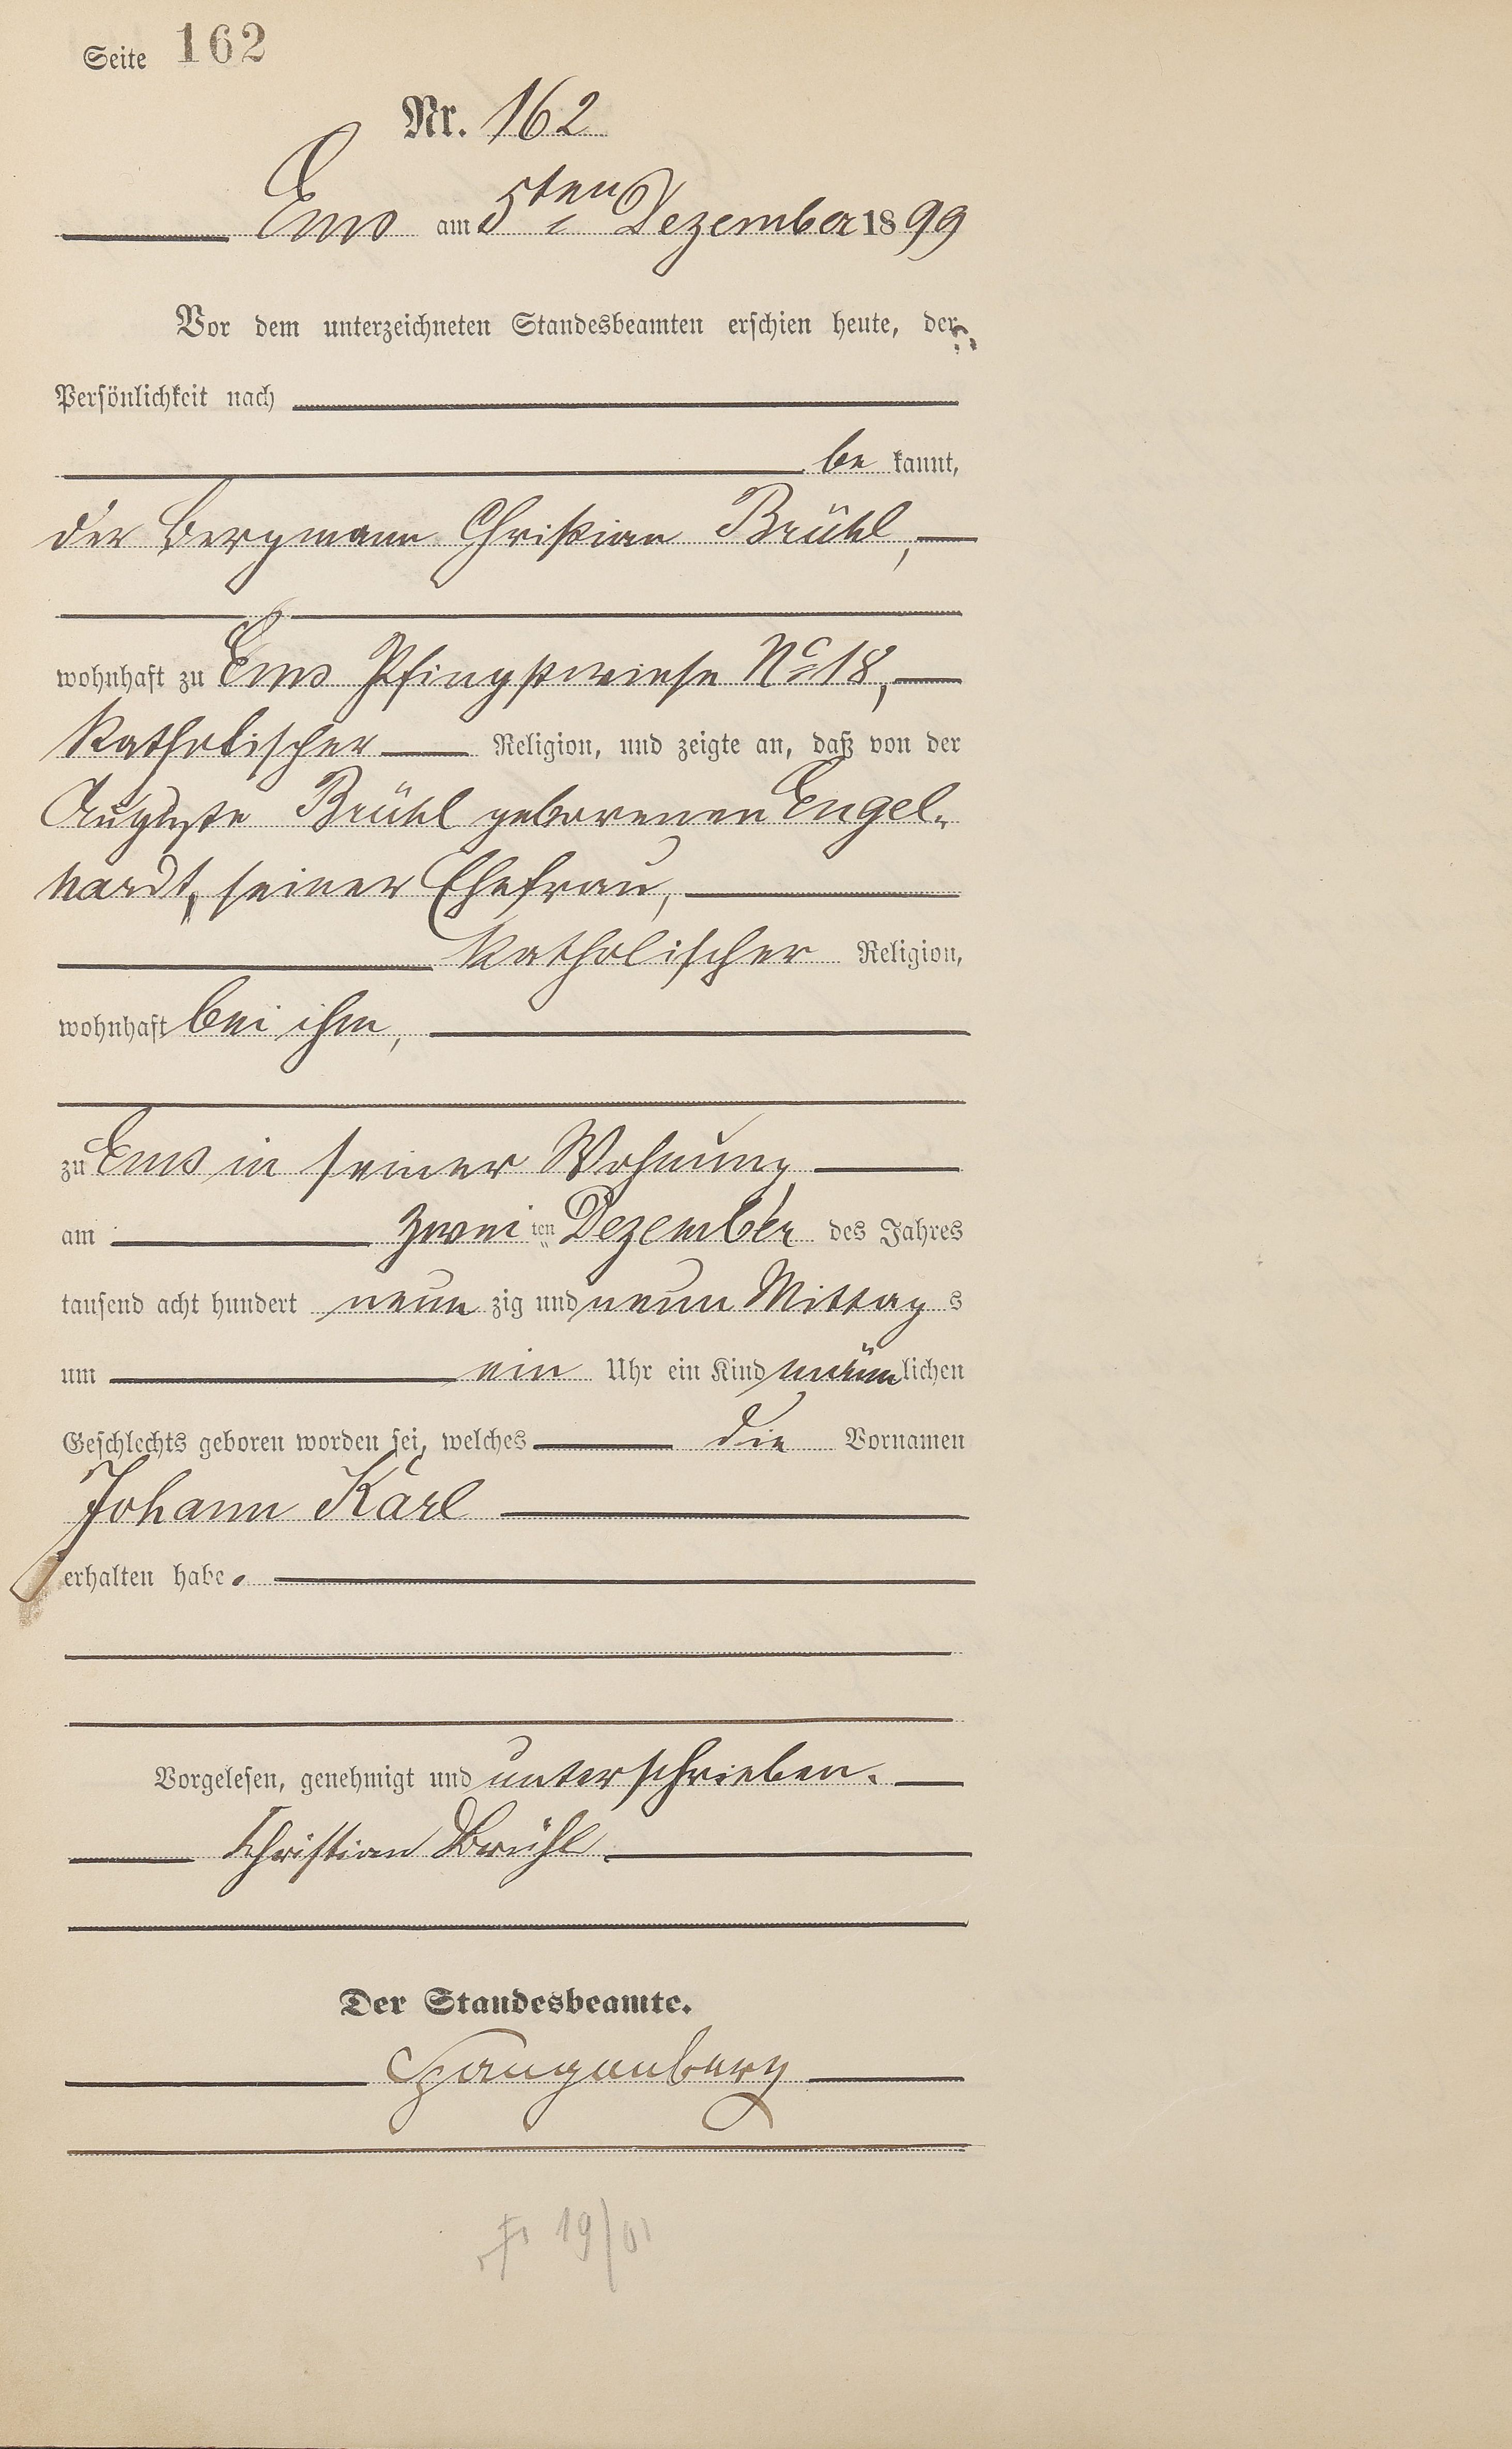 Seite 162
Nr. 162
Ems am 5ten Dezember 1899
Vor dem unterzeichneten Standesbeamten erschien heute, der
Persönlichkeit nach
be kannt,
der Bergmann Christian Brühl,
wohnhaft zu Ems Pfingstwiese No 18,
katholischer Religion, und zeigte an, daß von der
Auguste Brühl geborenen Engel-
hardt, seiner Ehefrau,
katholischer Religion,
wohnhaft bei ihm,
zu Ems in seiner Wohnung
am zwei ten Dezember des Jahres
tausend acht hundert neun zig und neun Mittag s
um ein Uhr ein Kind männlichen
Geschlechts geboren worden sei, welches die Vornamen
Johann Karl
erhalten habe.
Vorgelesen, genehmigt und unterschrieben.
Christian Brühl
Der Standesbeamte.
Spangenberg
19/01